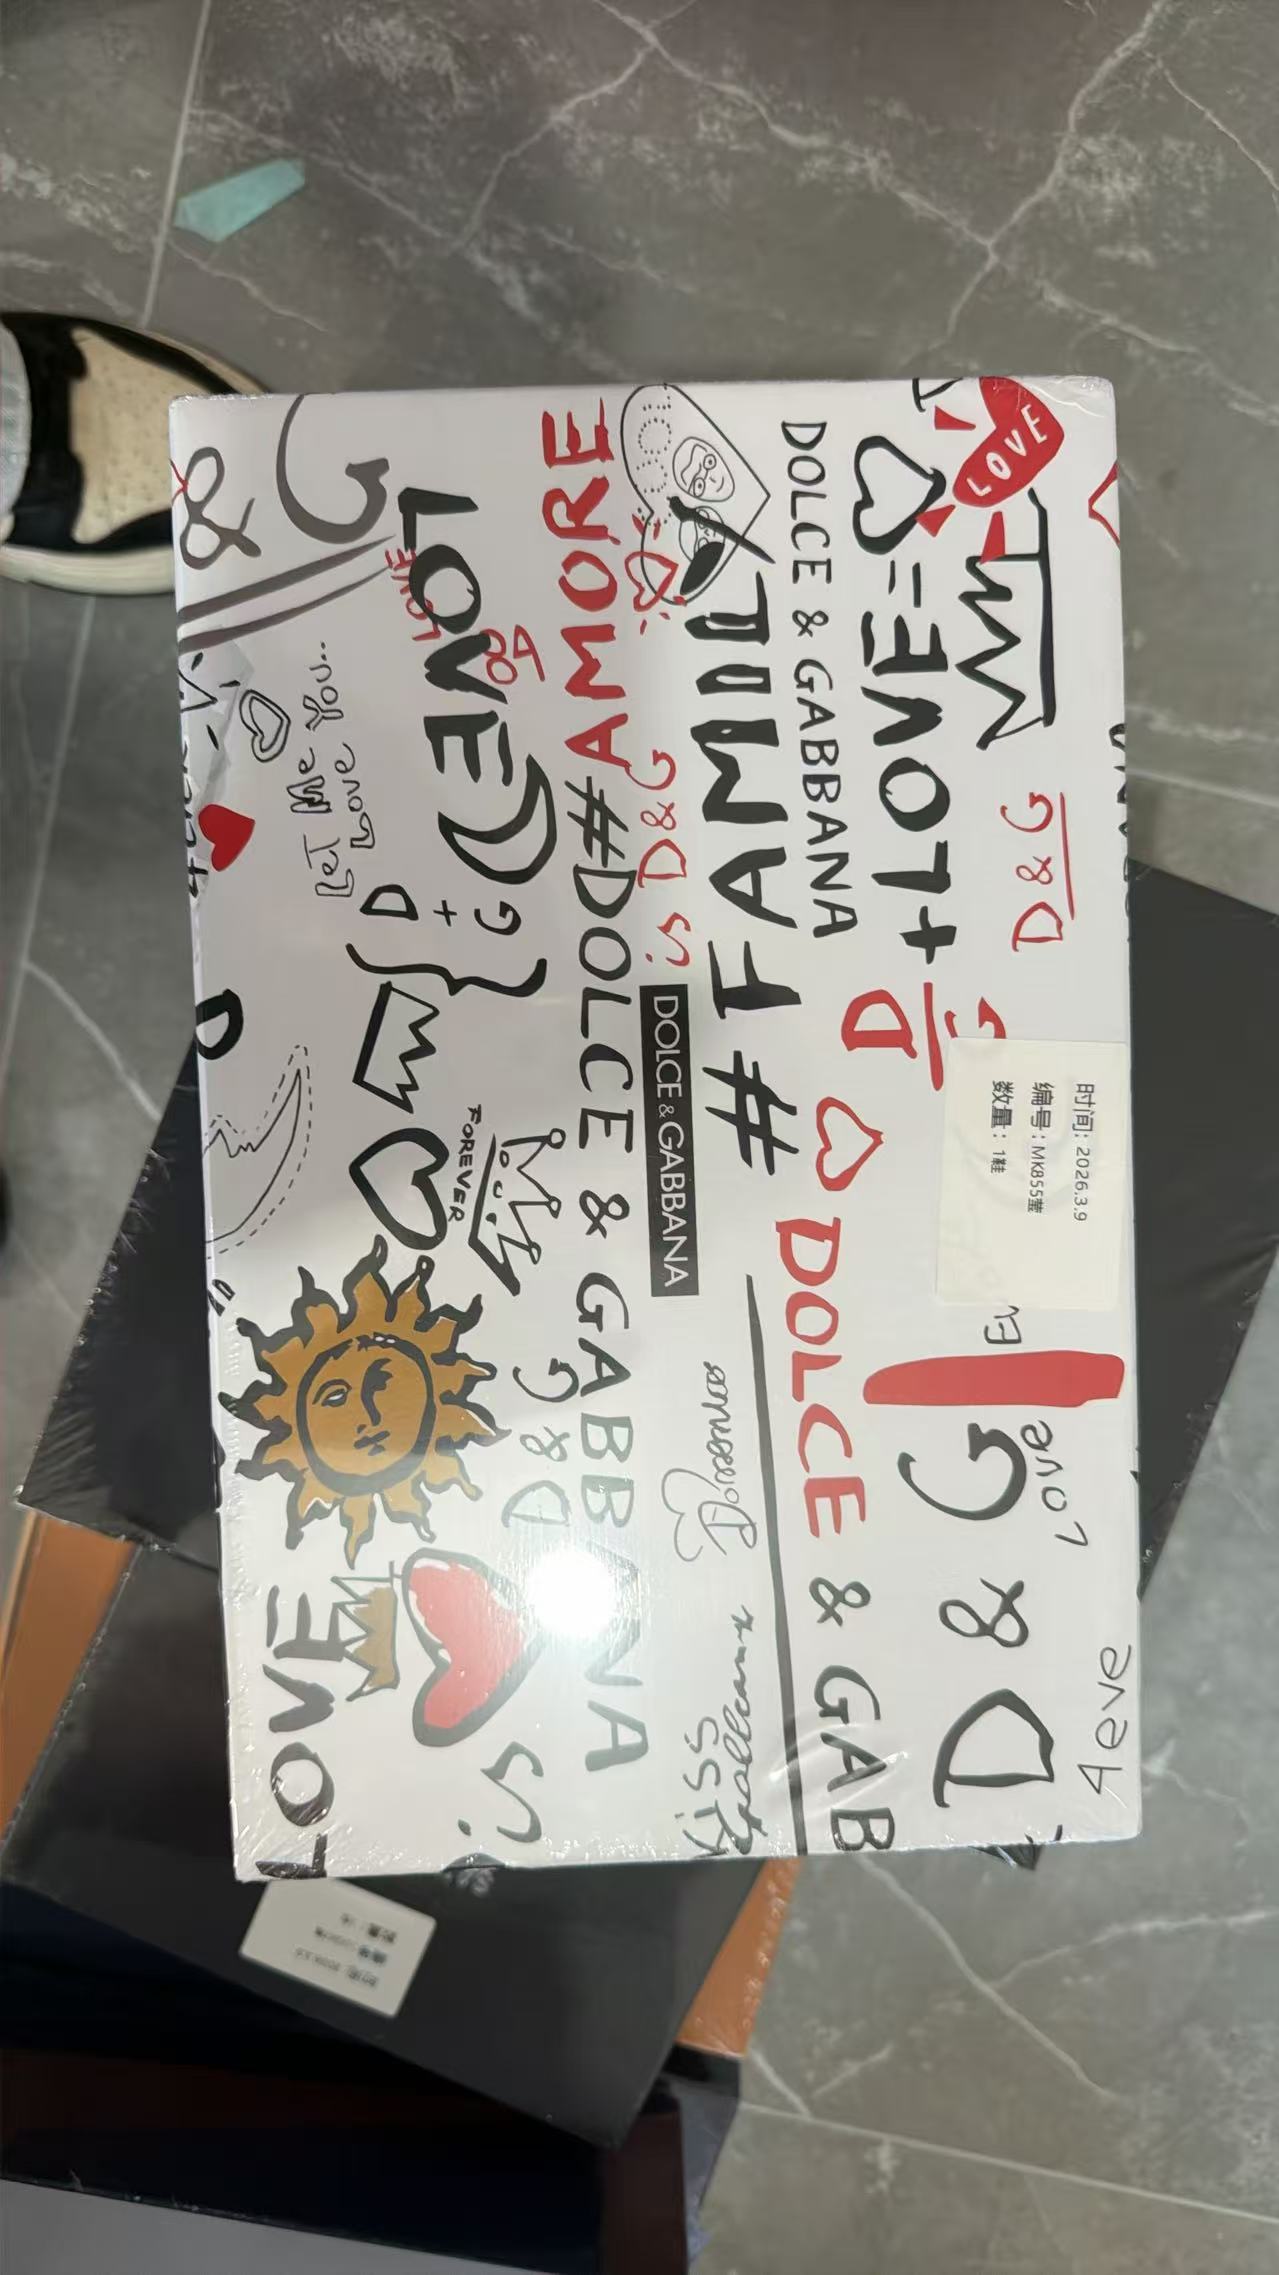 LOVE
♡=LOVE+
DOLCE & GABBANA
#FAMIL
AMORE
LOVE
LOVE
D&G
D&G is
#DOLCE & GABBANA
DOLCE & GABBANA
D
G
♡ DOLCE & GAB
时间: 2026.3.9
编号: MK855莹
数量: 1鞋
Let Me
Love You...
D
+
G
FOREVER
D&G
is
D & G
Love
4eve
Kiss
LOVE
D
4eve